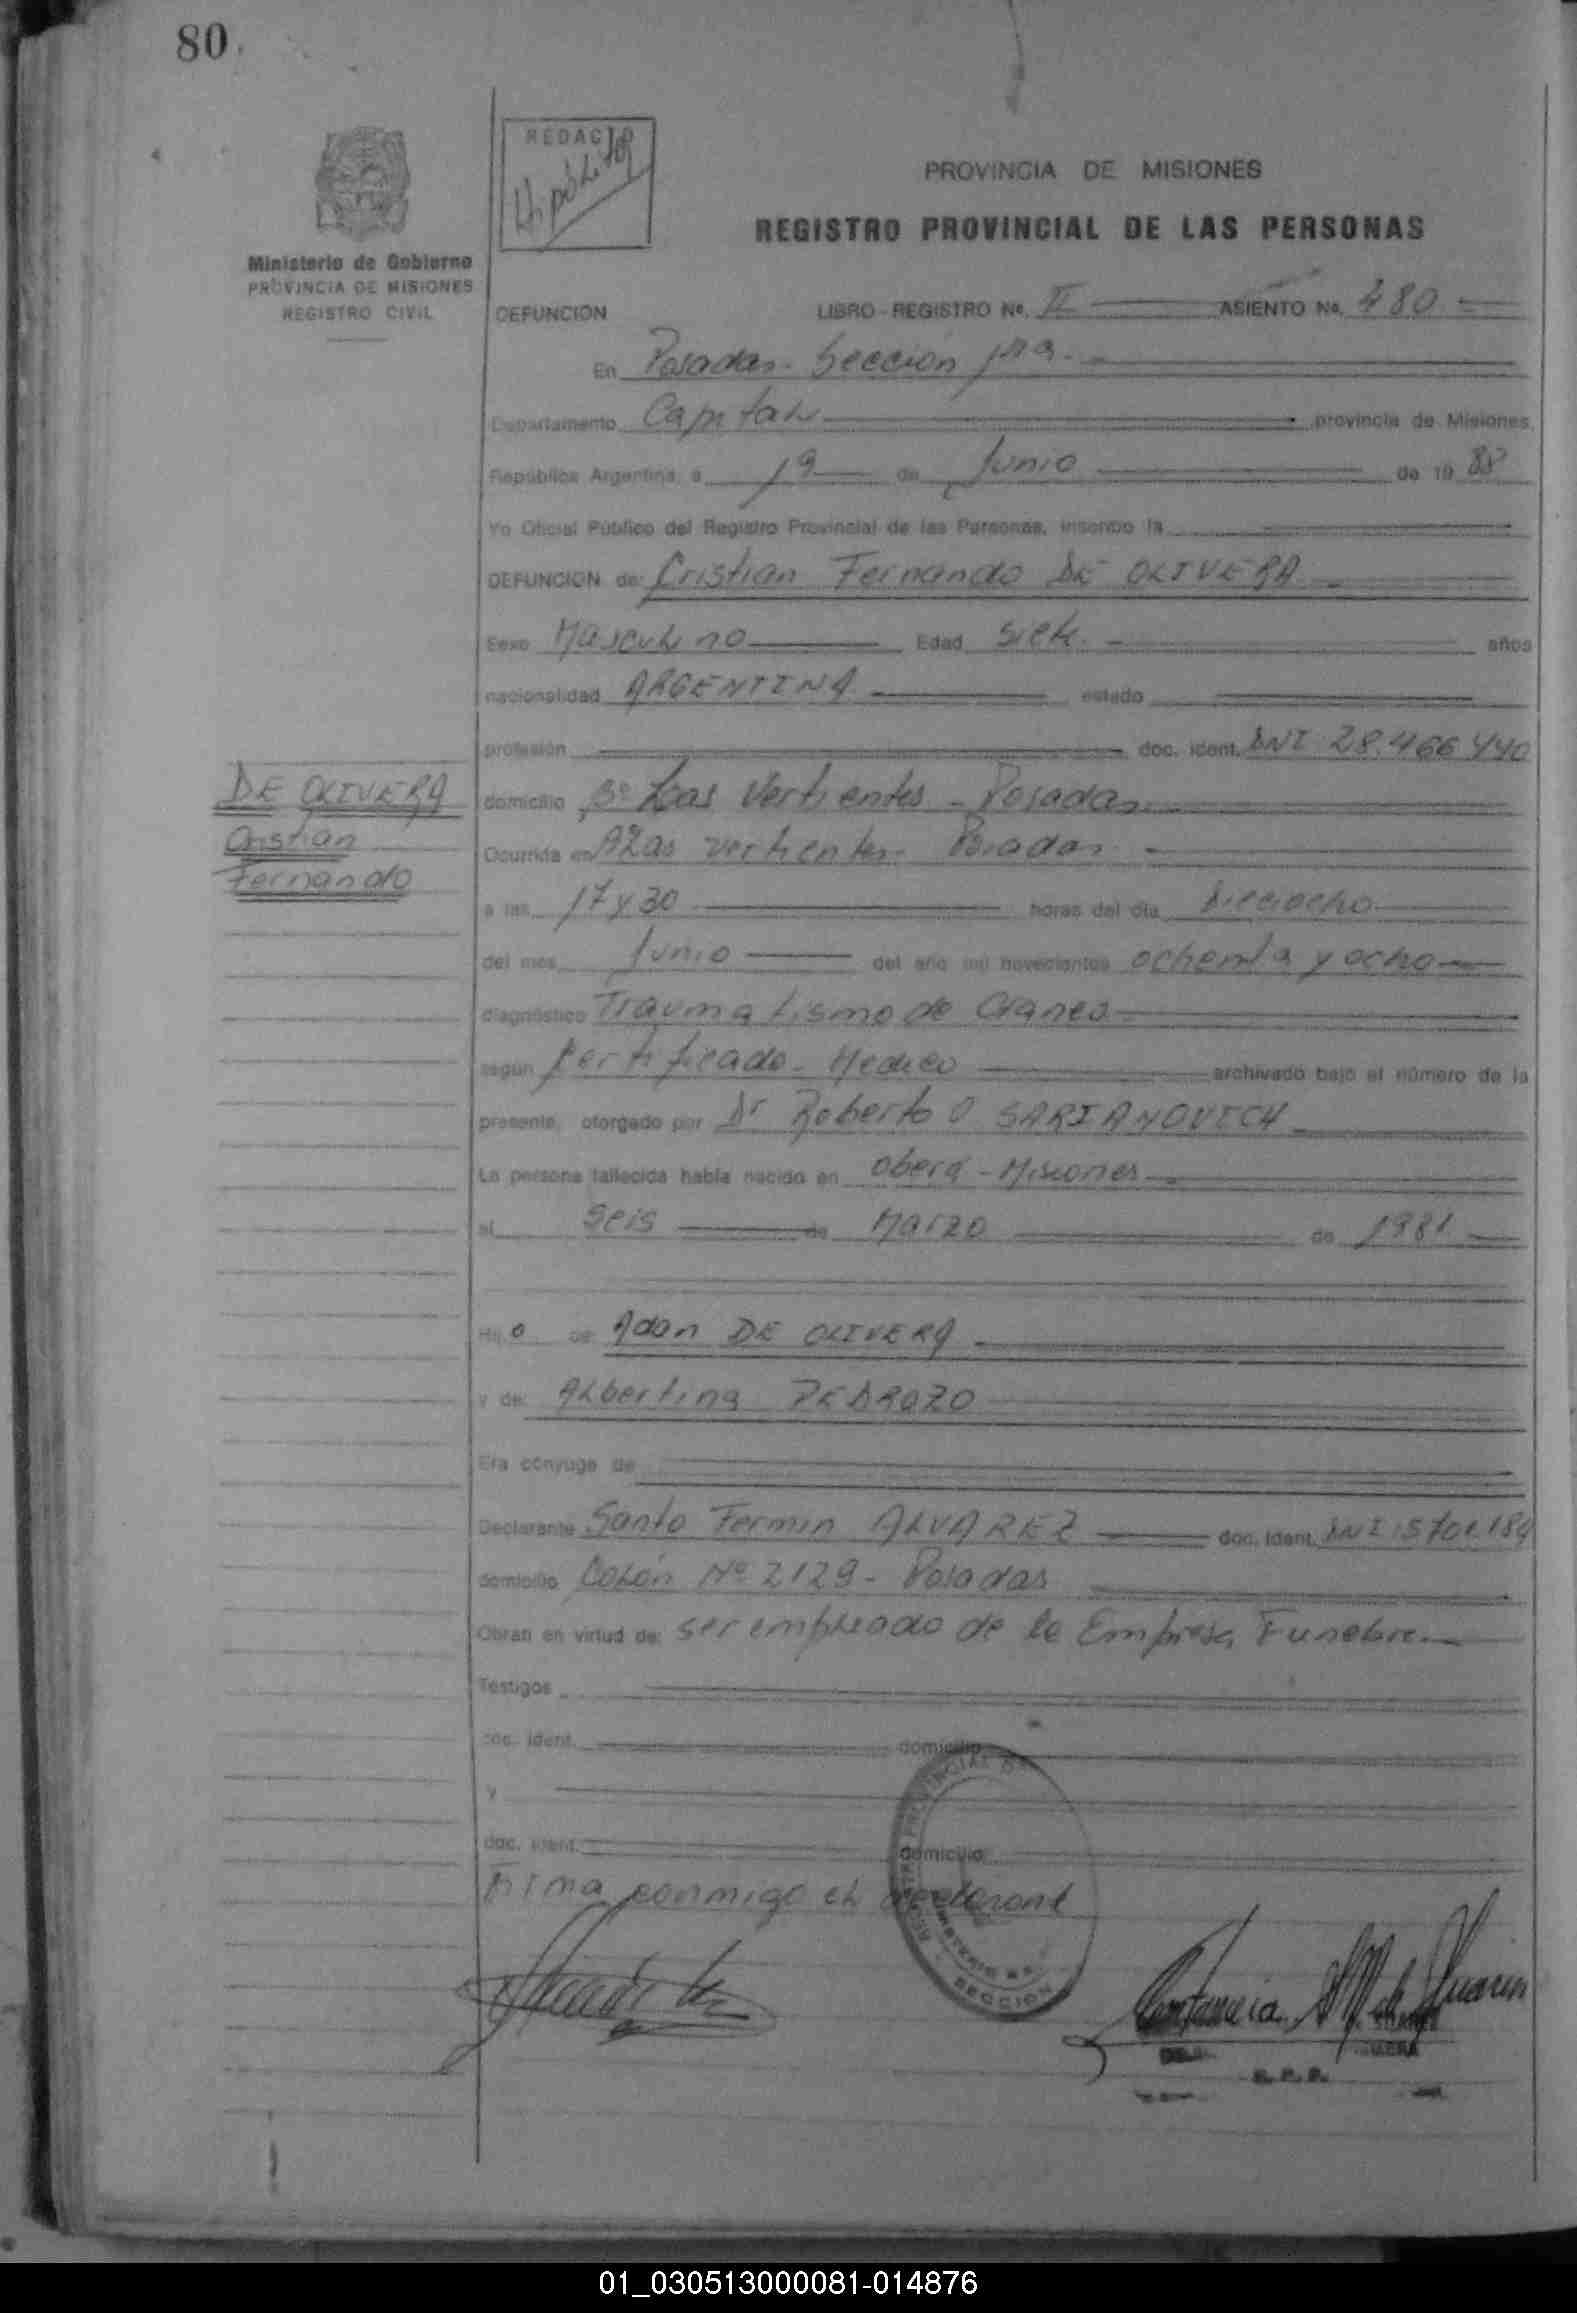 80
REDACTO
Hipólito
PROVINCIA DE MISIONES
REGISTRO PROVINCIAL DE LAS PERSONAS
Ministerio de Gobierno
PROVINCIA DE MISIONES
REGISTRO CIVIL
DEFUNCION LIBRO - REGISTRO No. II ASIENTO No. 480
En Posadas - Sección 1ra.
Departamento Capital provincia de Misiones,
República Argentina, a 19 de Junio de 19 88
Yo Oficial Público del Registro Provincial de las Personas, inscribo la
DEFUNCION de: Cristian Fernando DE OLIVERA
Sexo Masculino Edad siete años
nacionalidad ARGENTINA estado
profesión doc. ident. DNI 28.466.440
DE OLIVERA
Cristian
Fernando
domicilio Bº Las Vertientes - Posadas
Ocurrida en Las Vertientes - Posadas
a las 17 y 30 horas del día Dieciocho
del mes Junio del año mil novecientos ochenta y ocho
diagnóstico Traumatismo de Craneo
según Certificado - Medico archivado bajo el número de la
presente, otorgado por Dr Roberto O SARIANOVICH
La persona fallecida había nacido en Oberá - Misiones
el seis de Marzo de 1981
Hijo de Adan DE OLIVERA
y de: Albertina PEDROZO
Era cónyuge de
Declarante Santo Fermin ALVAREZ doc. ident. DNI 15.701.184
domicilio Colón Nº 2129 - Posadas
Obran en virtud de: ser empleado de la Empresa Funebre
Testigos
doc. ident. domicilio
y
doc. ident. domicilio
Firma conmigo el declarante
REGISTRO PROVINCIAL DE
SECCION
01_030513000081-014876